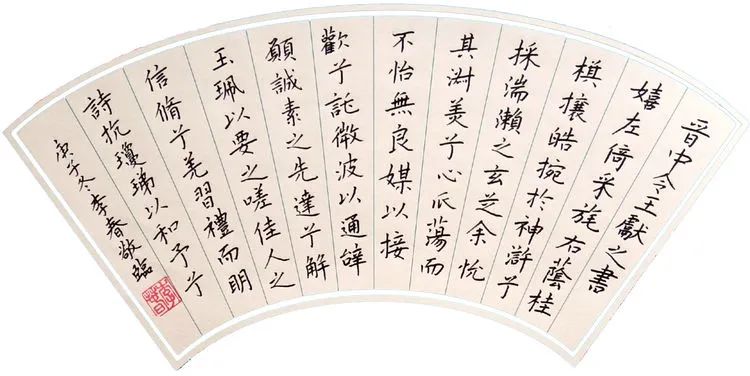 晉中令王獻之書
嬉左倚采旄右蔭桂
棋攘皓捥於神滸兮
採湍瀨之玄芝余悅
其淑美兮心爪蕩而
不怡無良媒以接
歡兮託微波以通辝
願誠素之先達兮解
玉珮以要之嗟佳人之
信脩兮羌習禮而明
詩抗瓊珶以和予兮
庚子冬李春敬臨